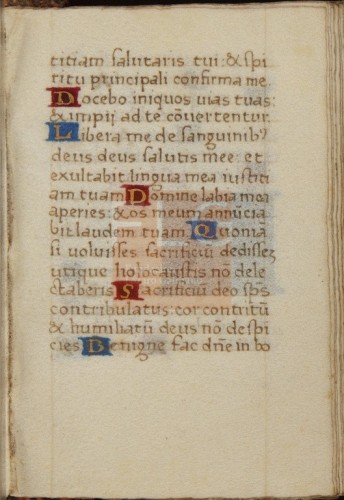 titiam salutaris tui: & spi
ritu principali confirma me
Docebo iniquos uias tuas:
& impij ad te cōuertentur
Libera me de sanguinibꝰ
deus deus salutis mee: et
exultabit lingua mea iustiti
am tuam Domine labia mea
aperies: & os meum annūcia
bit laudem tuam Quoniā
si uoluisses sacrificiū dedissez
utique holocaustis nō dele
ctaberis Sacrificiū deo sp̄s
contribulatus: cor contritū
& humiliatū deus nō despi
cies Benigne fac dn̄e in bo